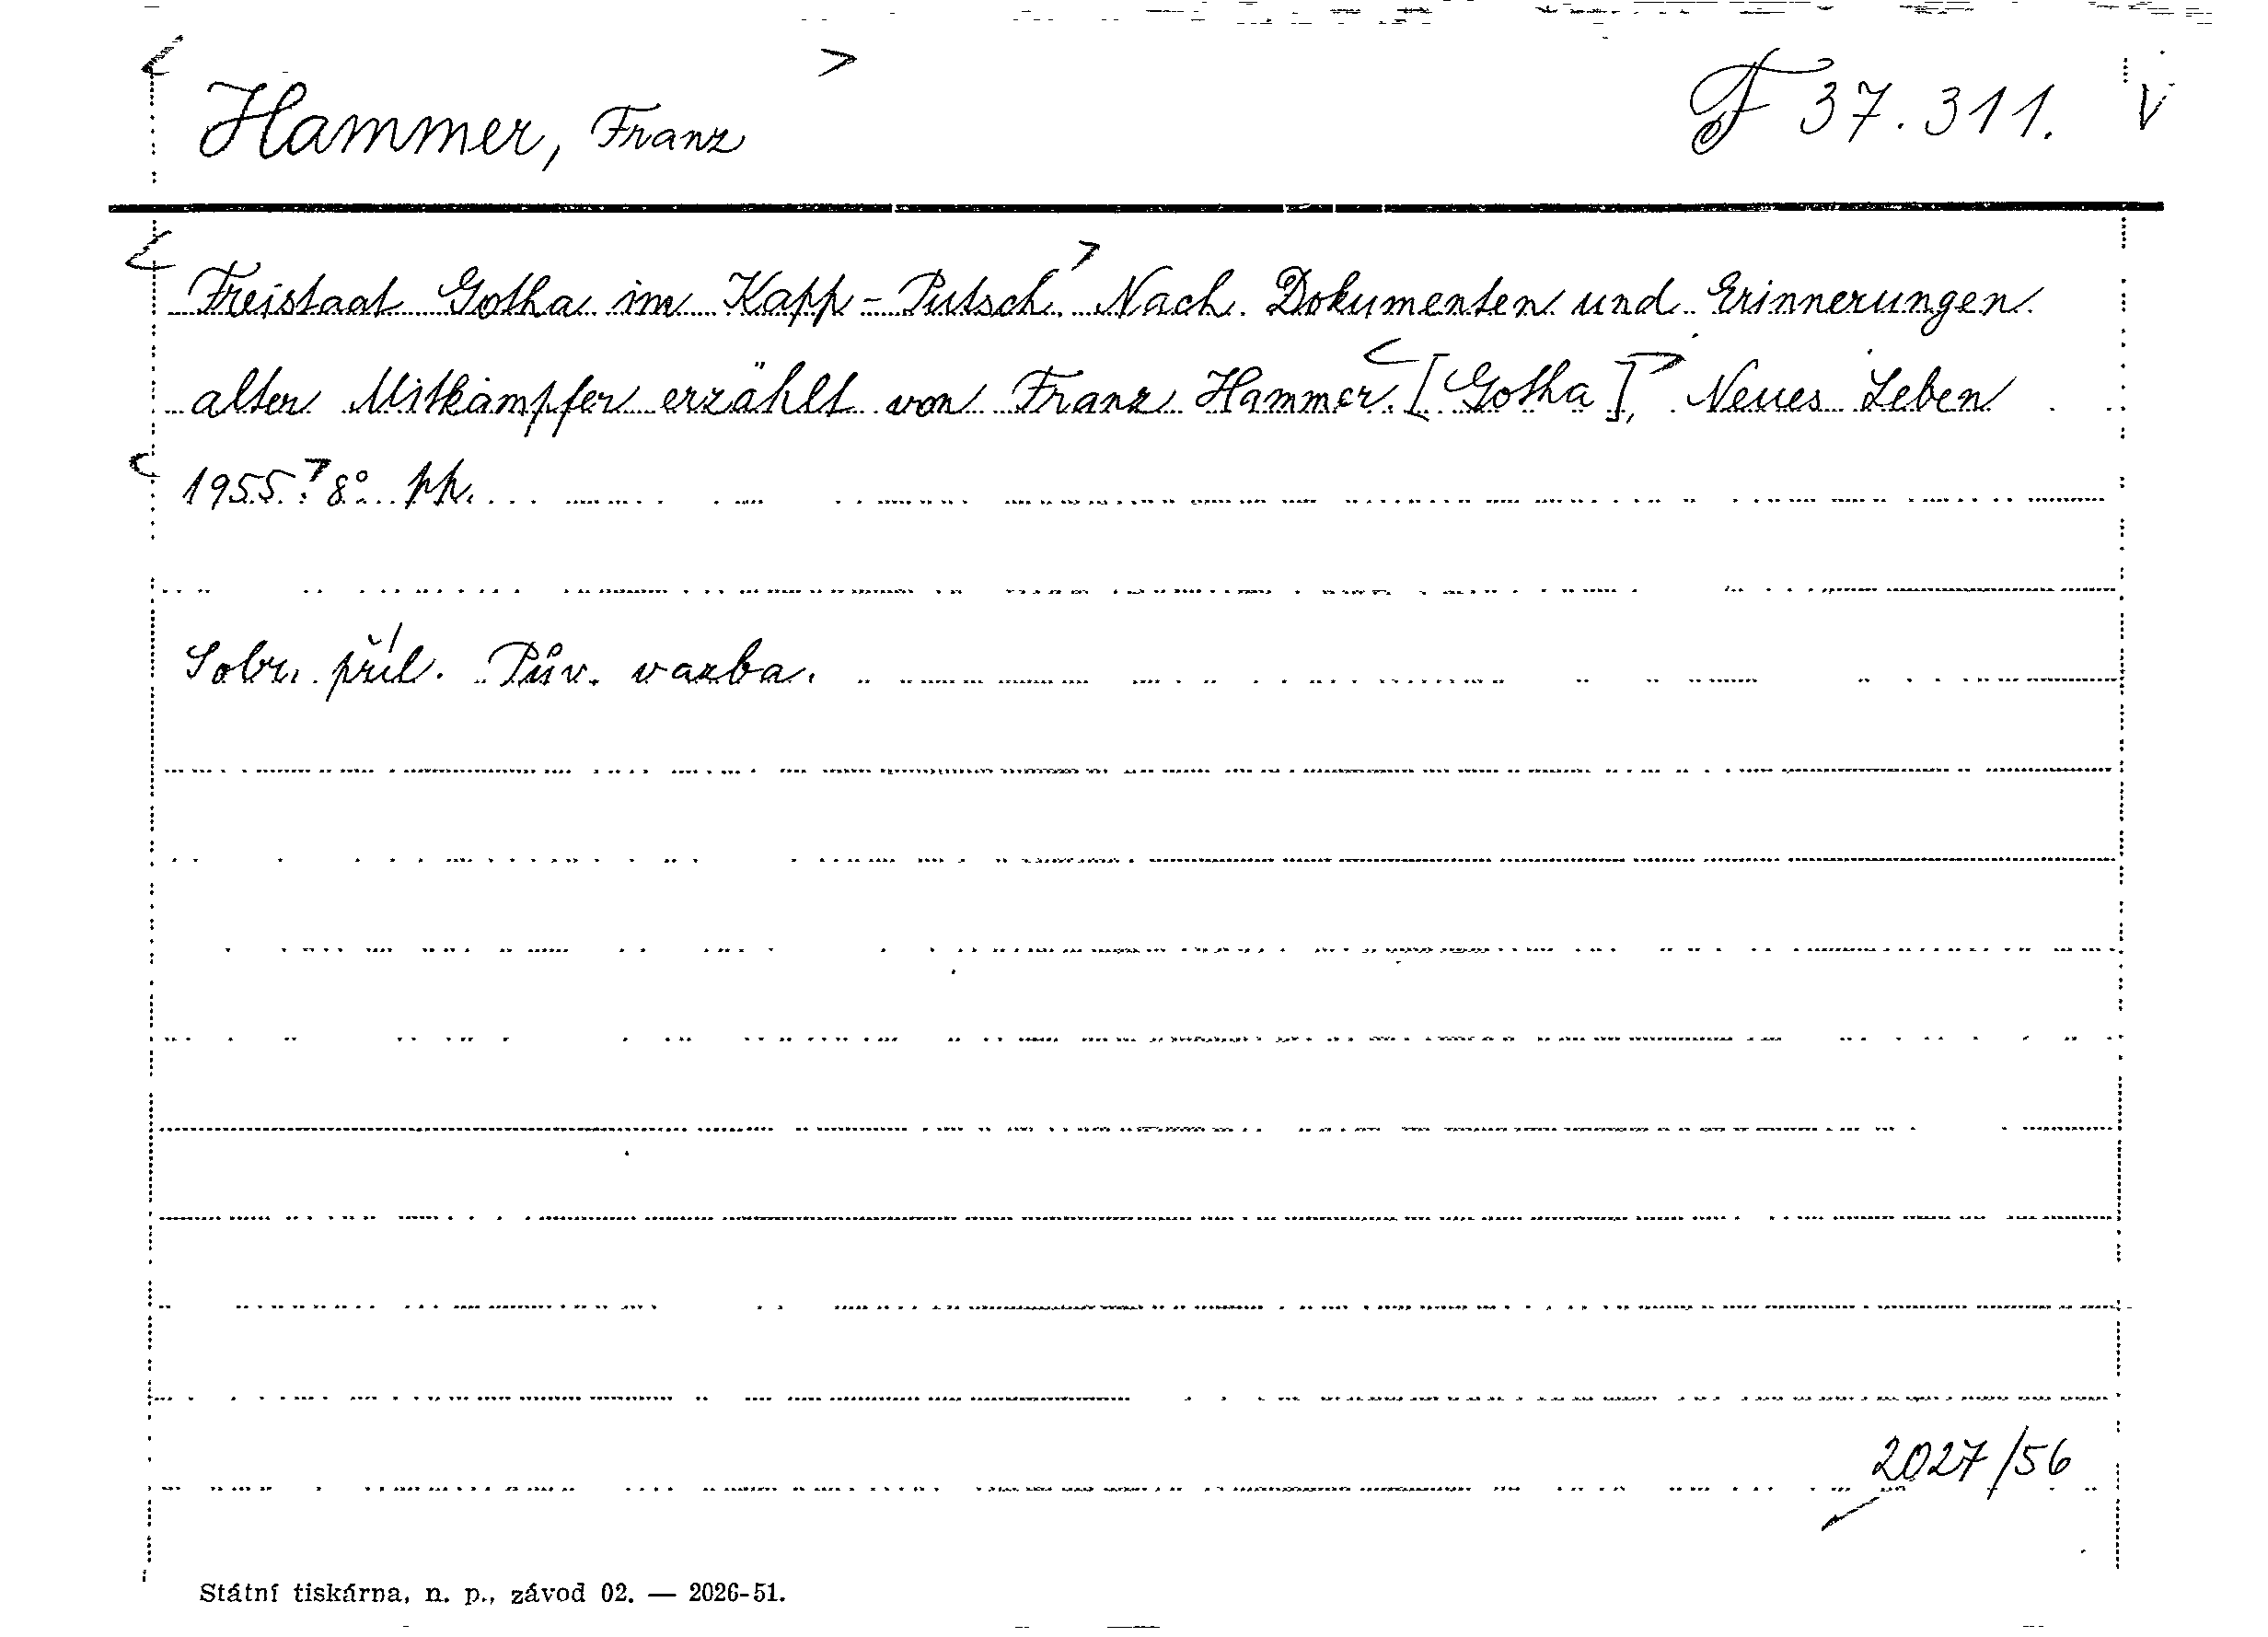 Hammer, Franz F 37.311. V
Freistaat Gotha im Kapp-Putsch. Nach Dokumenten und Erinnerungen
alter Mitkämpfer erzählt von Franz Hammer. [Gotha], Neues Leben
1955. 8°.
Sobr. příl. Pův. vazba.
2027/56
Státní tiskárna, n. p., závod 02. — 2026-51.